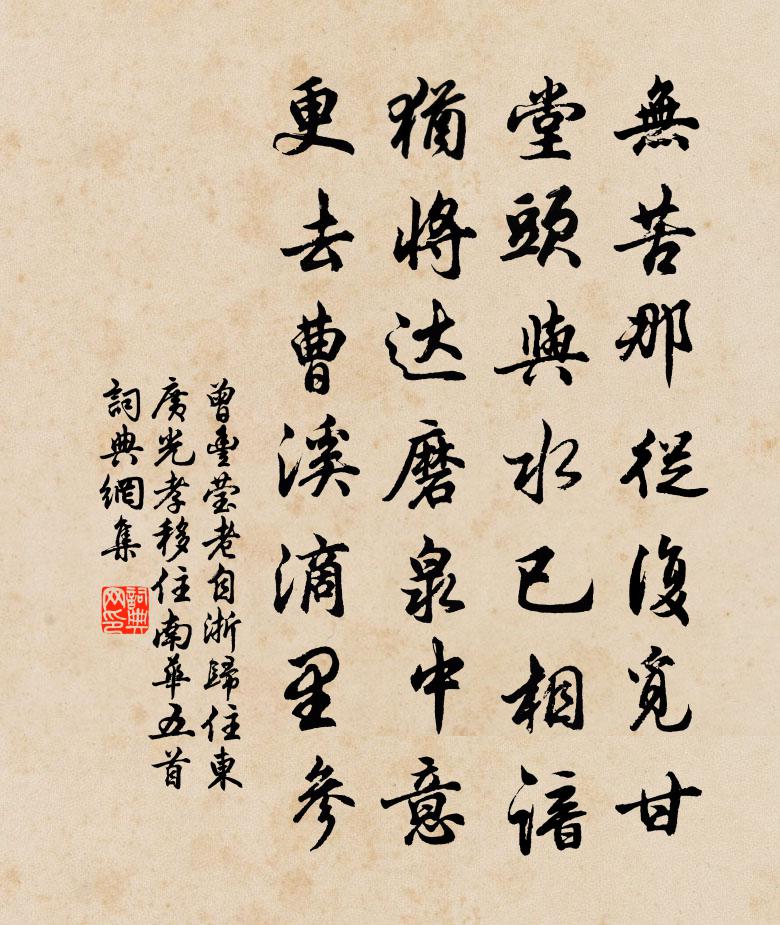 無苦那從復覓甘
堂頭與水已相諳
猶將达磨泉中意
更去曹溪滴里參
曾豐瑩老自浙歸住東
廣光孝移住南華五首
詞典網集
詞典网印